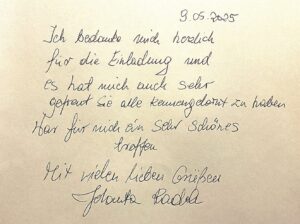 9.05.2025
Ich bedanke mich herzlich
für die Einladung und
es hat mich auch sehr
gefraut Sie alle kennengelernt zu haben
War für mich ein sehr schönes
treffen
Mit vielen lieben Grüßen
Jolanta